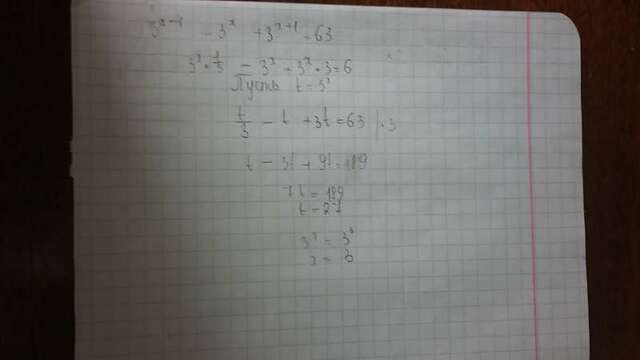 3ˣ⁻¹ - 3ˣ + 3ˣ⁺¹ = 63
3ˣ · 1/3 - 3ˣ + 3ˣ · 3 = 6
Пусть t = 3ˣ
t/3 - t + 3t = 63 | · 3
t - 3t + 9t = 189
7t = 189
t = 27
3ˣ = 3³